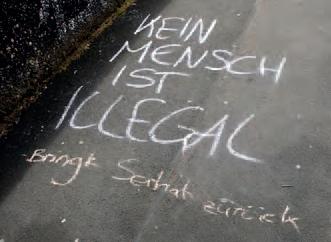 KEIN
MENSCH
IST
ILLEGAL
Bringt Serhat zurück